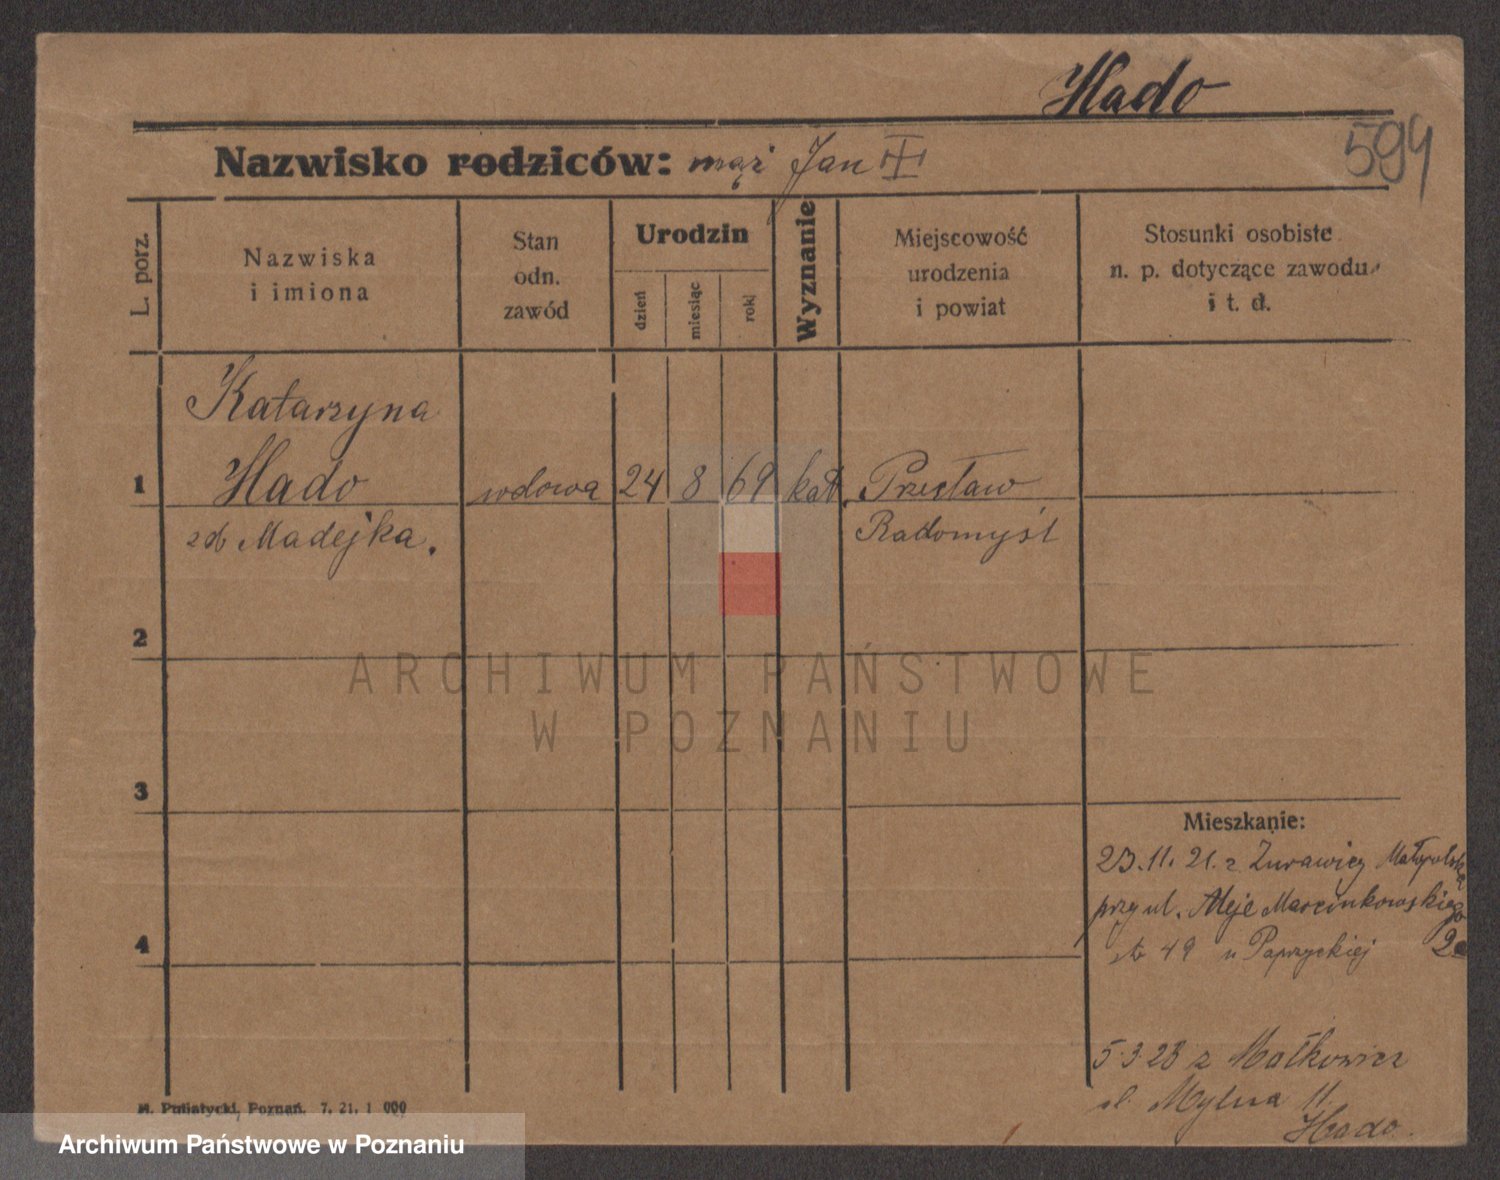 Hado
594
Nazwisko rodziców: mąż Jan
L. porz.
Nazwiska
i imiona
Stan
odn.
zawód
Urodzin
dzień
miesiąc
rok
Wyznanie
Miejscowość
urodzenia
i powiat
Stosunki osobiste
n. p. dotyczące zawodu
i t. d.
Katarzyna
1 Hado wdowa 24 8 69 kat. Przecław
zd Madejka. Radomyśl
2
ARCHIWUM PAŃSTWOWE
W POZNANIU
3
Mieszkanie:
23.11.21. z Żurawicy Małopolska
przy ul. Aleje Marcinkowskiego
4 49 u Paprzyckiej
5.3.23 z Małkowicz
ul. Mylna 11.
Hado.
Pułiatycki, Poznań. 7. 21. 1 000
Archiwum Państwowe w Poznaniu